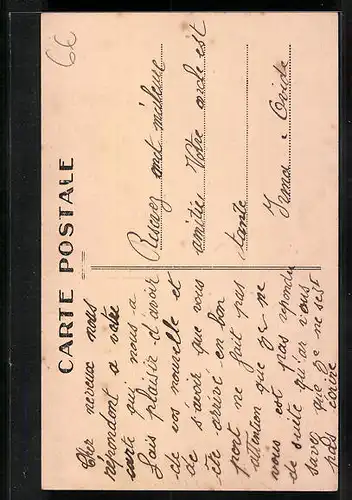 6€
CARTE POSTALE
Cher neveux nous
répondont a votre
carte qui nous a
fais plaisir d'avoir
de vos nouvelle et
de s'avoir que vous
ète arrivé en bon
port ne fait pas
attention que ge ne
vous est pas répondu
de suite qu'ar vous
savez que ge ne sest
pas écrire
Resevez met meilleure
amitiés Votre oncle est
tante
Irma. Ovide